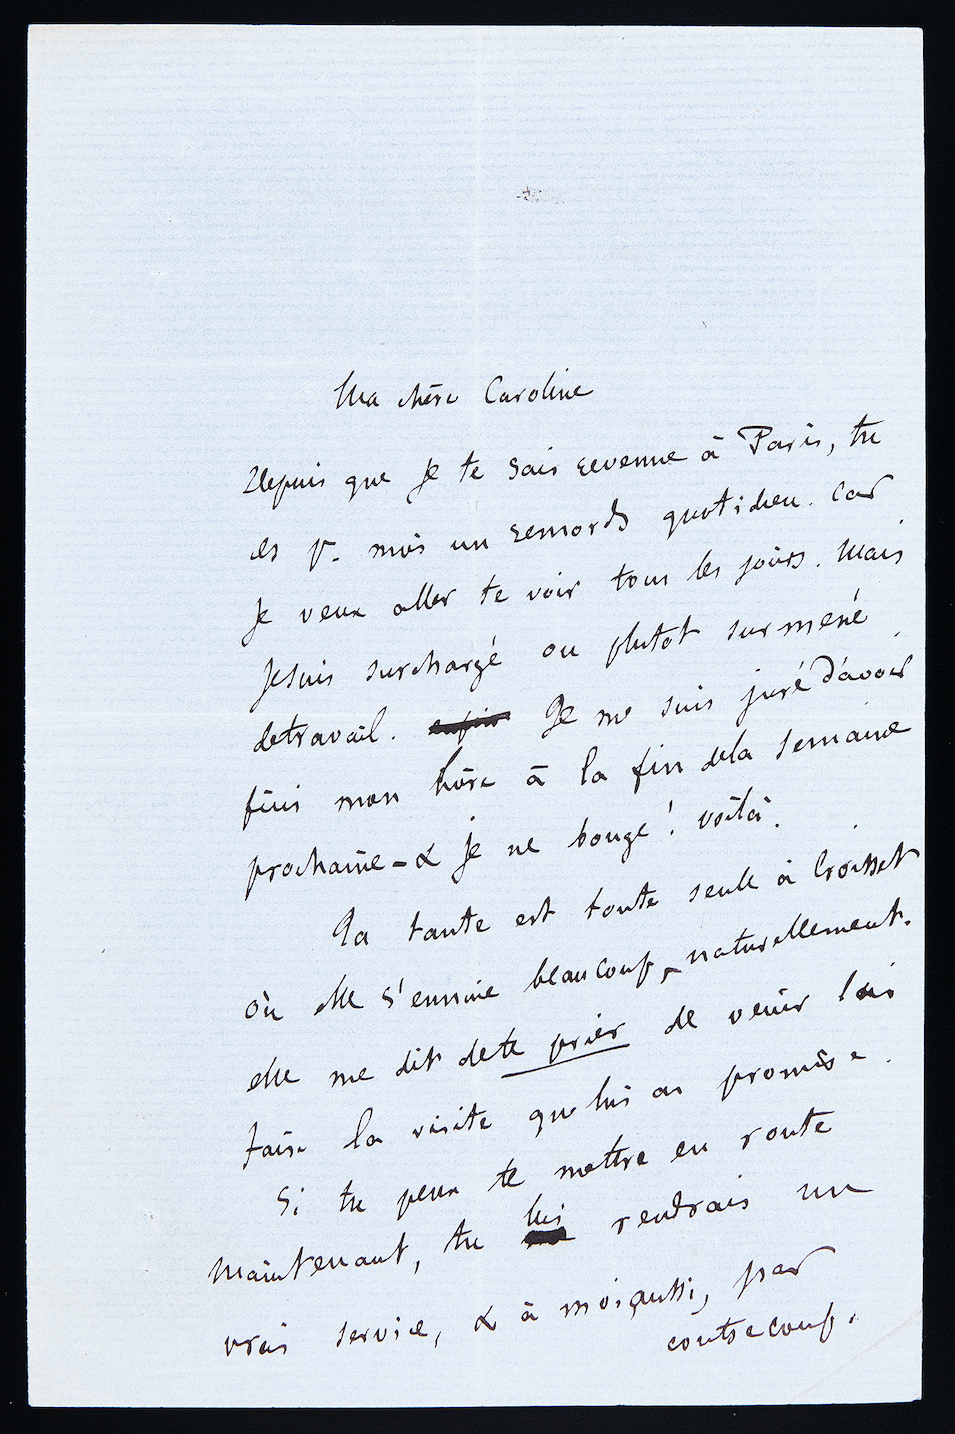 Ma chère Caroline
Depuis que je te sais revenue à Paris, tu
es pr. moi un remords quotidien. Car
je veux aller te voir tous les jours. Mais
je suis surchargé ou plutot surmené
de travail. enfin Je me suis juré d'avoir
fini mon livre à la fin de la semaine
prochaine – & je ne bouge! voilà.
Ta tante est toute seule à Croisset
où elle s'ennuie beaucoup, naturellement.
elle me dit de te prier de venir lui
faire la visite que lui as promise.
Si tu peux te mettre en route
maintenant, tu lui rendrais un
vrai service, & à moi, aussi, par
contrecoup.